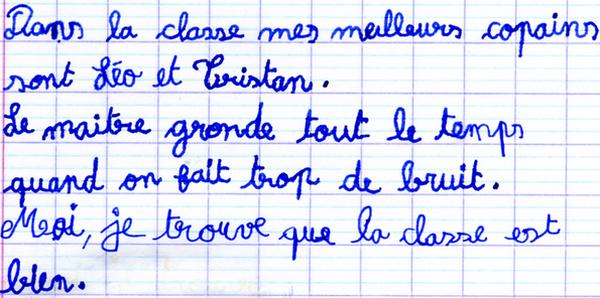 Dans la classe mes meilleurs copains
sont Léo et Tristan.
Le maitre gronde tout le temps
quand on fait trop de bruit.
Moi, je trouve que la classe est
bien.